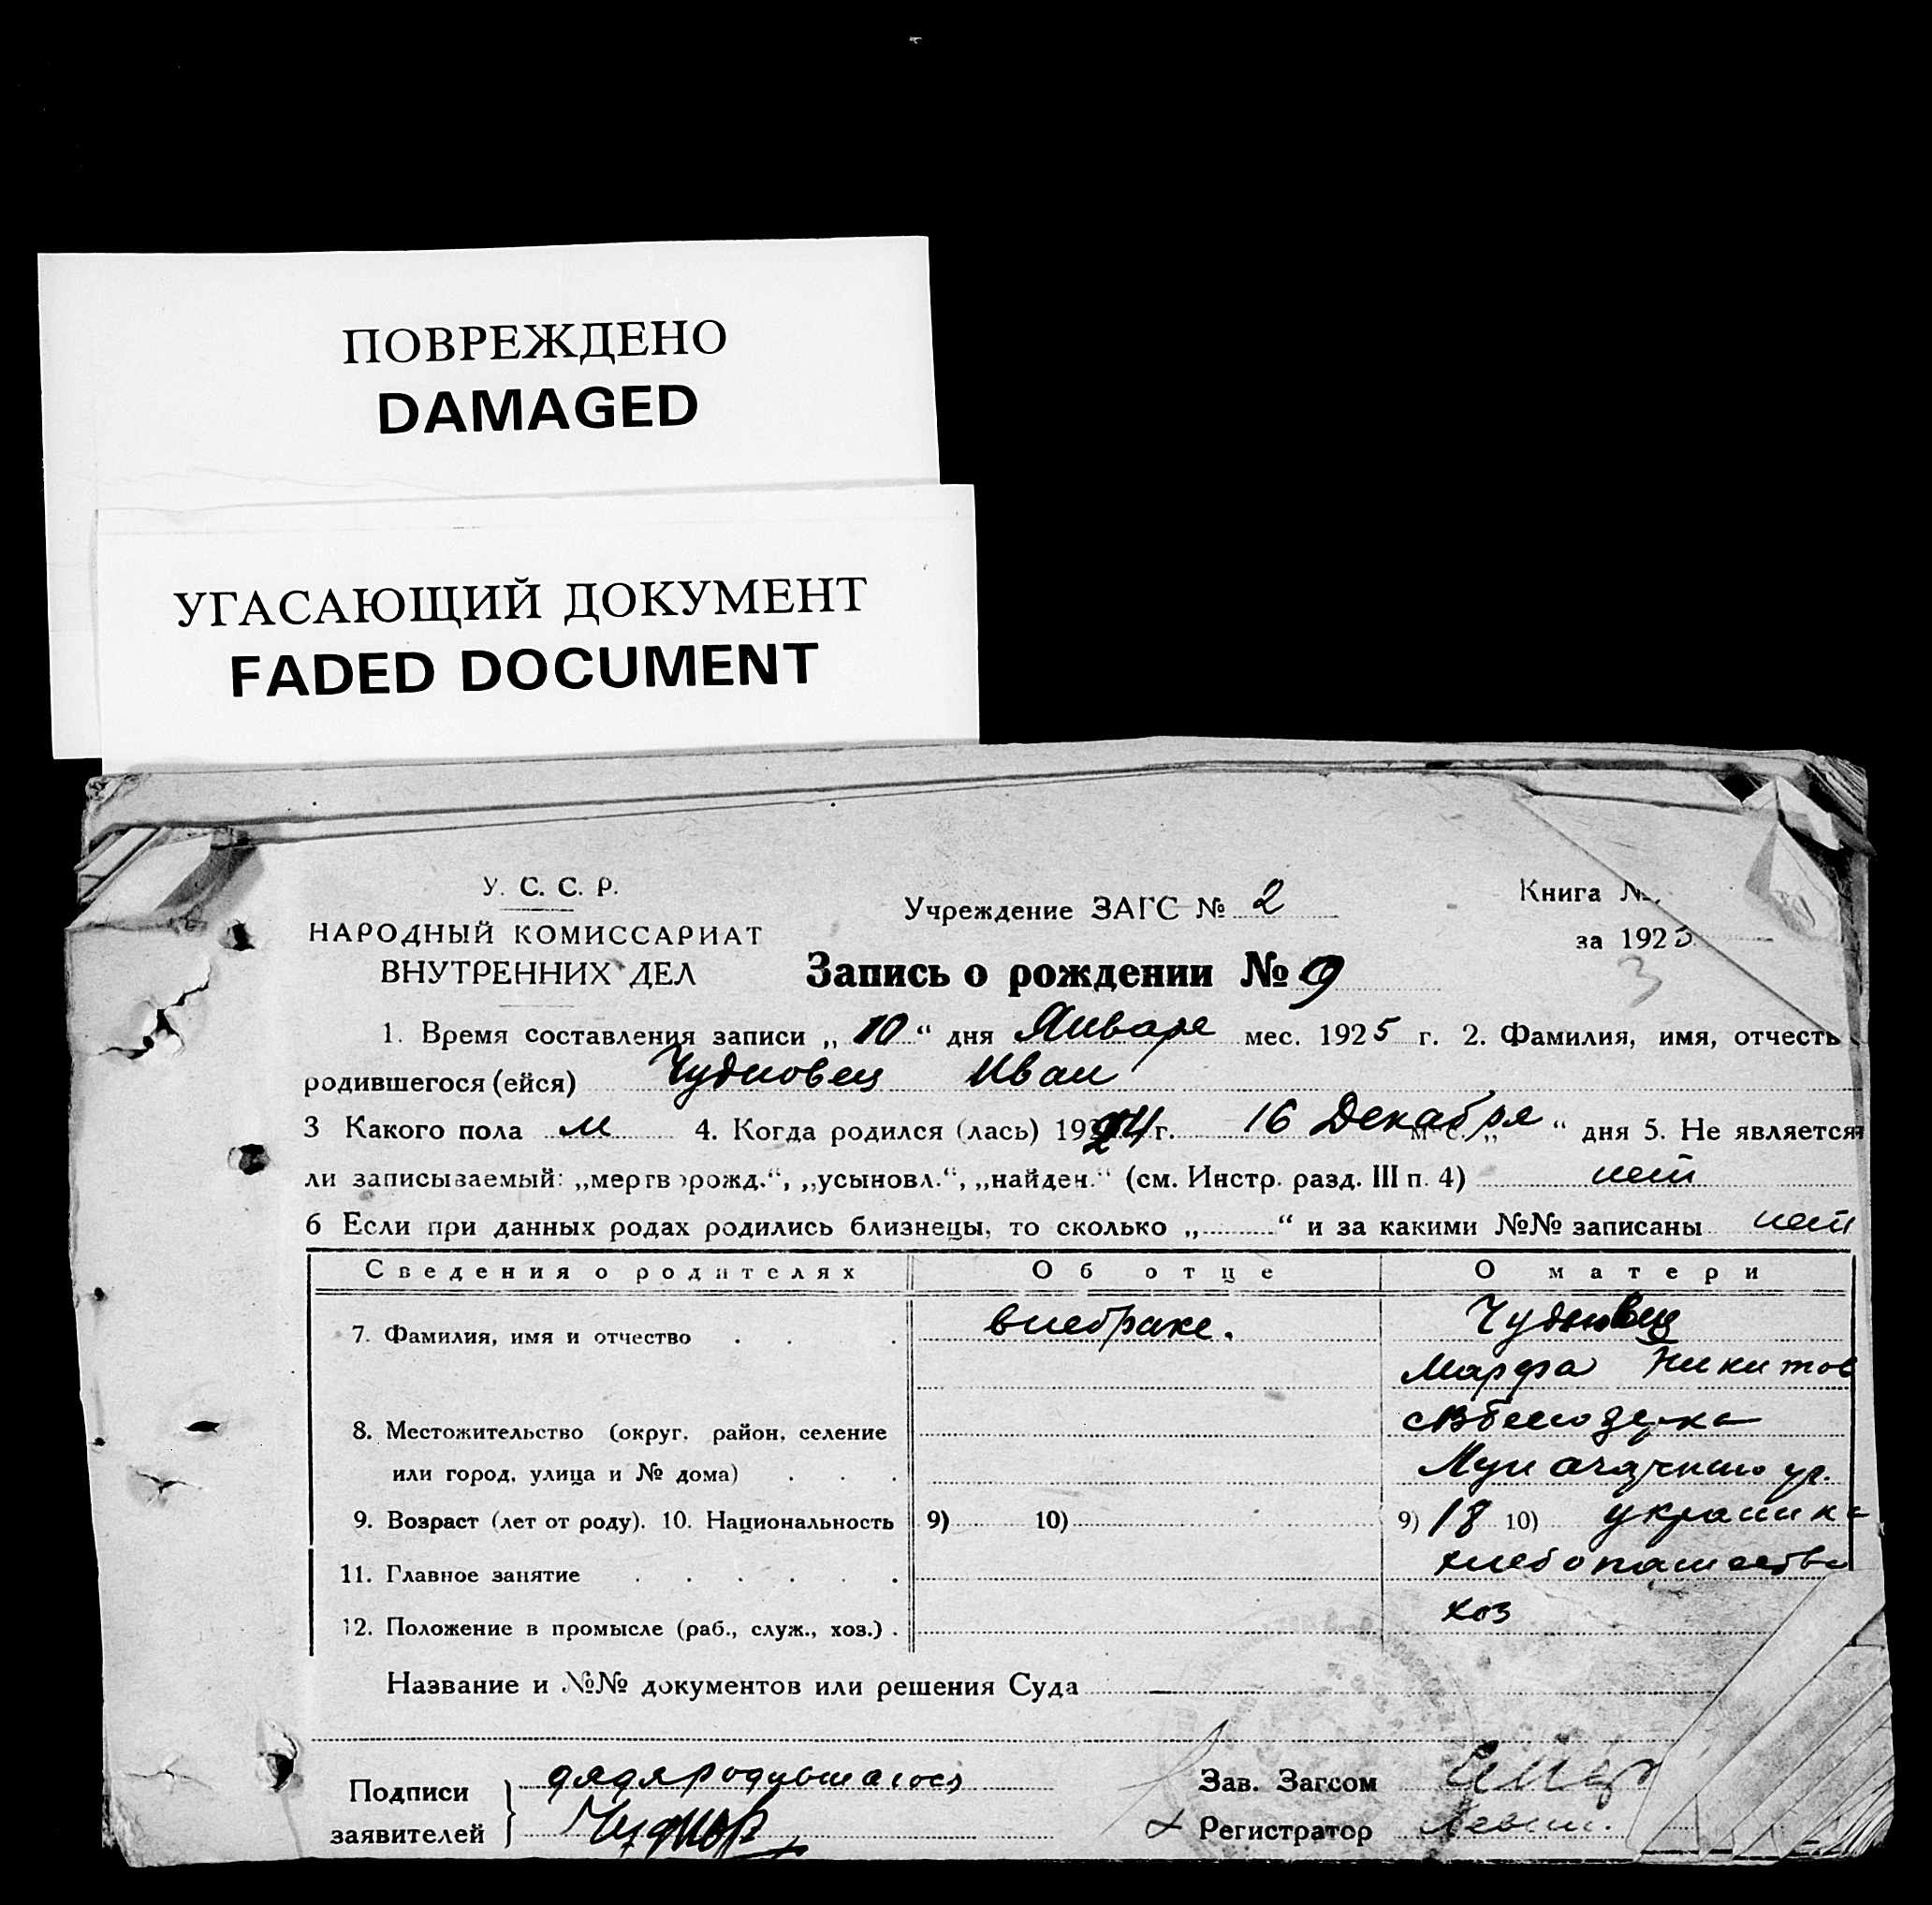 ПОВРЕЖДЕНО
DAMAGED
УГАСАЮЩИЙ ДОКУМЕНТ
FADED DOCUMENT
У. С. С. Р.
НАРОДНЫЙ КОМИССАРИАТ
ВНУТРЕННИХ ДЕЛ
Учреждение ЗАГС № 2
Книга №
за 1925
3
Запись о рождении № 9
1. Время составления записи „ 10 “ дня Января мес. 1925 г. 2. Фамилия, имя, отчесть
родившегося (ейся) Чудновец Иван
3 Какого пола м 4. Когда родился (лась) 1924 г. 16 Декабря „ “ дня 5. Не является
ли записываемый: „мертворожд.“, „усыновл.“, „найден.“ (см. Инстр. разд. III п. 4) нет
6 Если при данных родах родились близнецы, то сколько „ “ и за какими №№ записаны нет
Сведения о родителях Об отце О матери
7. Фамилия, имя и отчество внебраке. Чудновец
Марфа Никитов
8. Местожительство (округ, район, селение
или город, улица и № дома)
9. Возраст (лет от роду). 10. Национальность 9) 10) 9) 18 10) украинка
11. Главное занятие хлебопашество
12. Положение в промысле (раб., служ., хоз.) . хоз
Название и №№ документов или решения Суда
Подписи
заявителей
дядя родившагося
Зав. Загсом
Регистратор